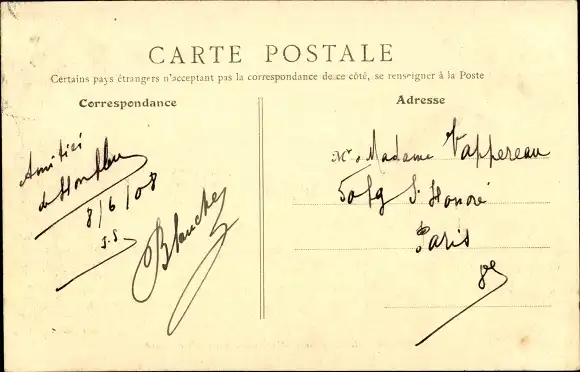 CARTE POSTALE
Certains pays étrangers n'acceptant pas la correspondance de ce côté, se renseigner à la Poste
Correspondance
Amitiés
de Honfleur
8/6/08
Blanche
Adresse
Mr Madame Vappereau
50 fg St Honoré
Paris
8e